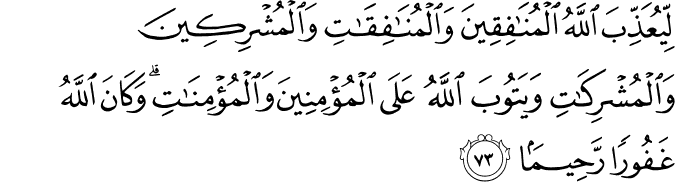 لِّيُعَذِّبَ ٱللَّهُ ٱلْمُنَـٰفِقِينَ وَٱلْمُنَـٰفِقَـٰتِ وَٱلْمُشْرِكِينَ
وَٱلْمُشْرِكَـٰتِ وَيَتُوبَ ٱللَّهُ عَلَى ٱلْمُؤْمِنِينَ وَٱلْمُؤْمِنَـٰتِ ۗ وَكَانَ ٱللَّهُ
غَفُورًا رَّحِيمًۢا ٧٣